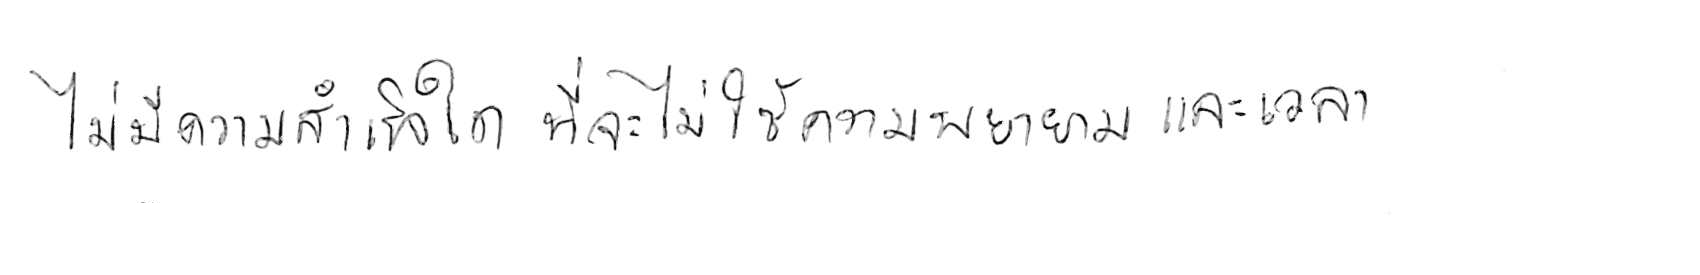 ไม่มีความสำเร็จใด ที่จะไม่ใช้ความพยายาม และเวลา